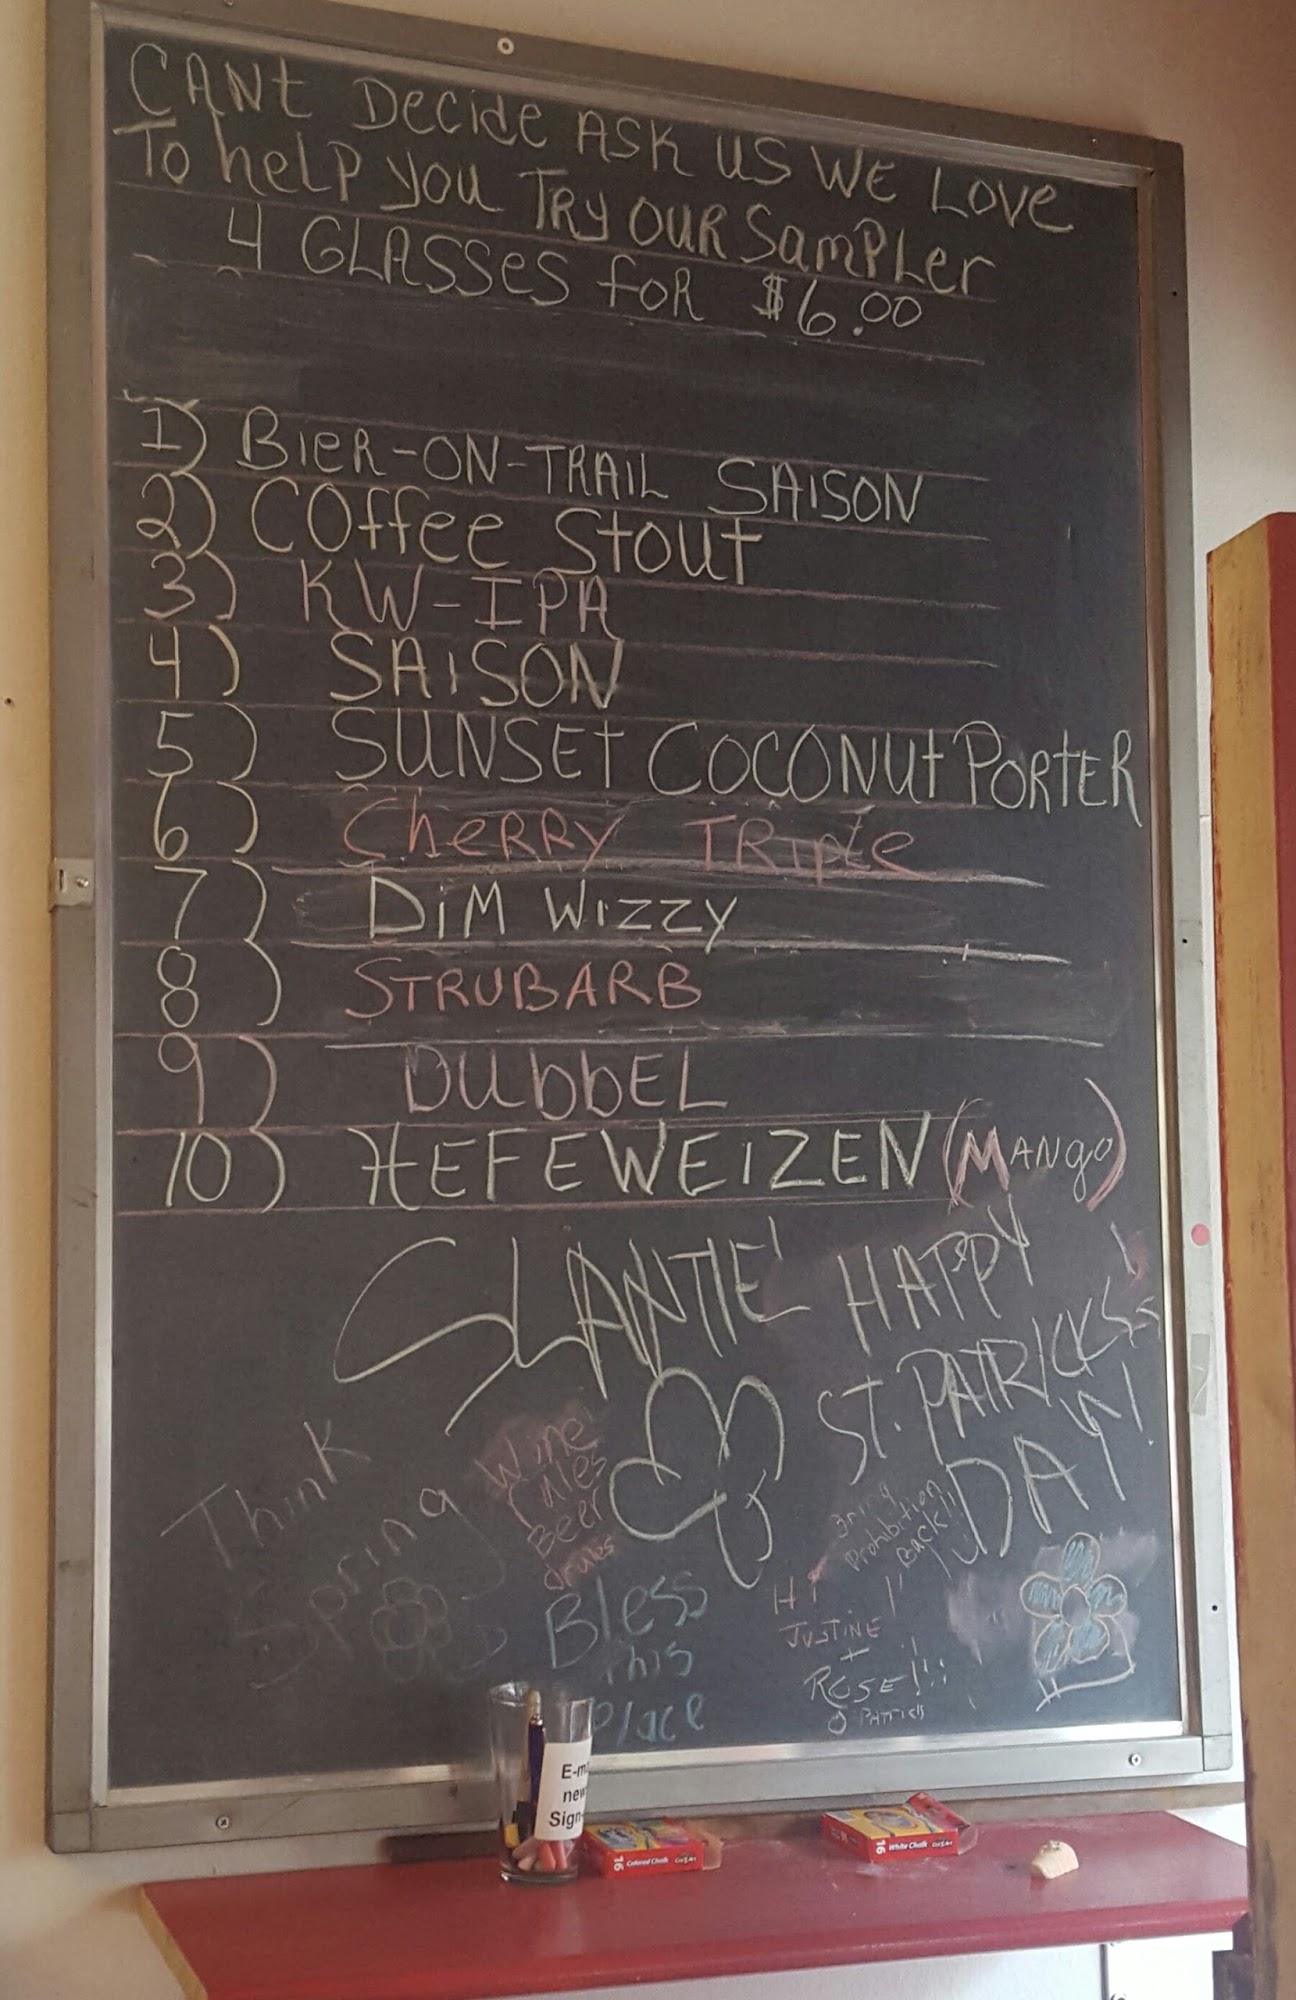 CANt Decide ASK US WE LOVe
To help you TRY OUR SamPLer
4 GLASSes foR $6.00
1) BIeR-ON-TRAIL SAISON
2) COffee Stout
3) KW-IPA
4) SAiSON
5) SUNSEt COCONUt PORtER
6) CheRRY TRiple
7) DiM WizzY
8) STRUBARB
9) DUbbEL
10) HEFEWEIZEN (MANgo)
SLANTE' HAPPY
ST. PATRICKS
DAY!
Think
Spring
Wine
rules
Beer
drules
Bring
Prohibition
Back!!
Bless
this
place
Hi
JUSTINE
+
ROSE!!!
PATRICK
E-m
new
Sign-
16 Colored Chalk
16 White Chalk